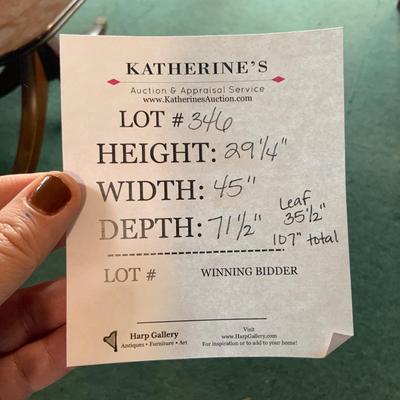 KATHERINE'S
Auction & Appraisal Service
www.KatherinesAuction.com
LOT # 346
HEIGHT: 29 1/4"
WIDTH: 45"
DEPTH: 71 1/2"
Leaf
35 1/2"
107" total
LOT #
WINNING BIDDER
Harp Gallery
Antiques • Furniture • Art
Visit
www.HarpGallery.com
For inspiration or to add to your home!